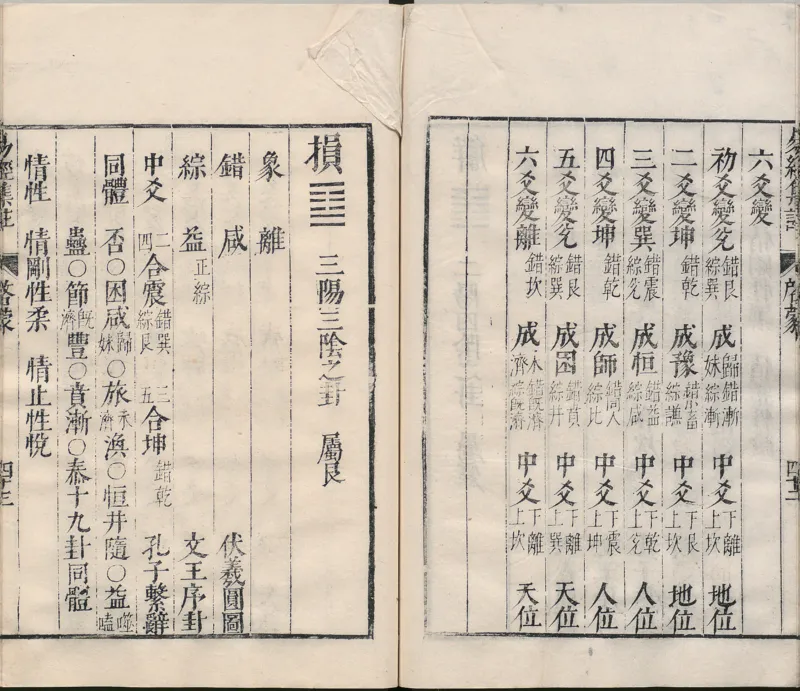 六爻變
初爻變兌 錯艮綜巽 成歸妹 錯漸綜漸 中爻 下離上坎 地位
二爻變坤 錯乾 成豫 錯小畜綜謙 中爻 下艮上坎 地位
三爻變巽 錯震綜兌 成恒 錯益綜咸 中爻 下乾上兌 人位
四爻變坤 錯乾 成師 錯同人綜比 中爻 下震上坤 人位
五爻變兌 錯艮綜巽 成困 錯賁綜井 中爻 下離上巽 天位
六爻變離 錯坎 成未濟 錯既濟綜既濟 中爻 下離上坎 天位
損 ䷨ 三陽三陰之卦 屬艮
象離
錯咸 伏羲圓圖
綜益 正綜 文王序卦
中爻 二四合震 錯巽綜艮 三五合坤 錯乾 孔子繫辭
同體 否○困咸歸妹○旅未濟渙○恒井隨○益噬嗑
蠱○節既濟豐○賁漸○泰十九卦同體
情性 情剛性柔 情止性悅
易經集註 啓蒙 四十三